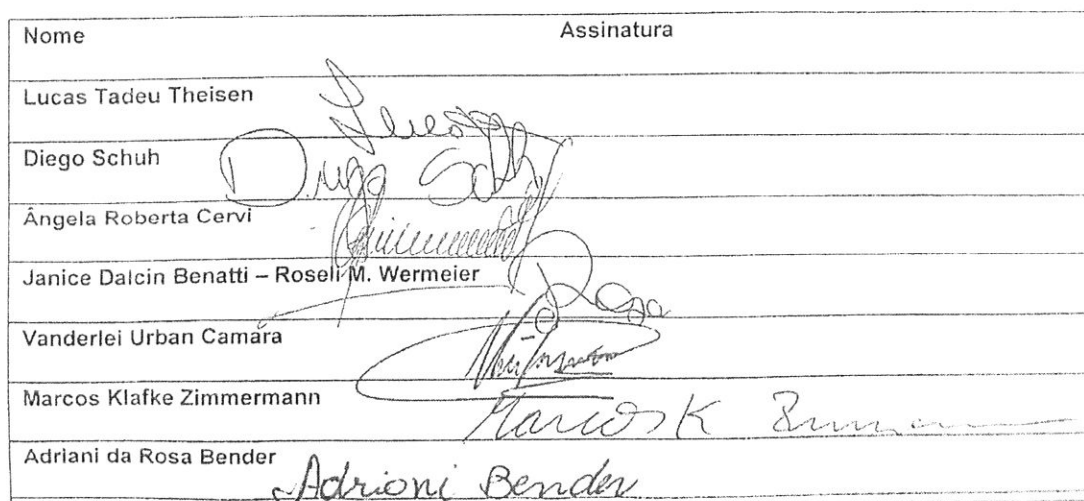 Nome Assinatura
Lucas Tadeu Theisen
Diego Schuh
Diego Sch
Ângela Roberta Cervi
Janice Dalcin Benatti – Roseli M. Wermeier
Vanderlei Urban Camara
Marcos Klafke Zimmermann
Marcos K
Adriani da Rosa Bender
Adriani Bender